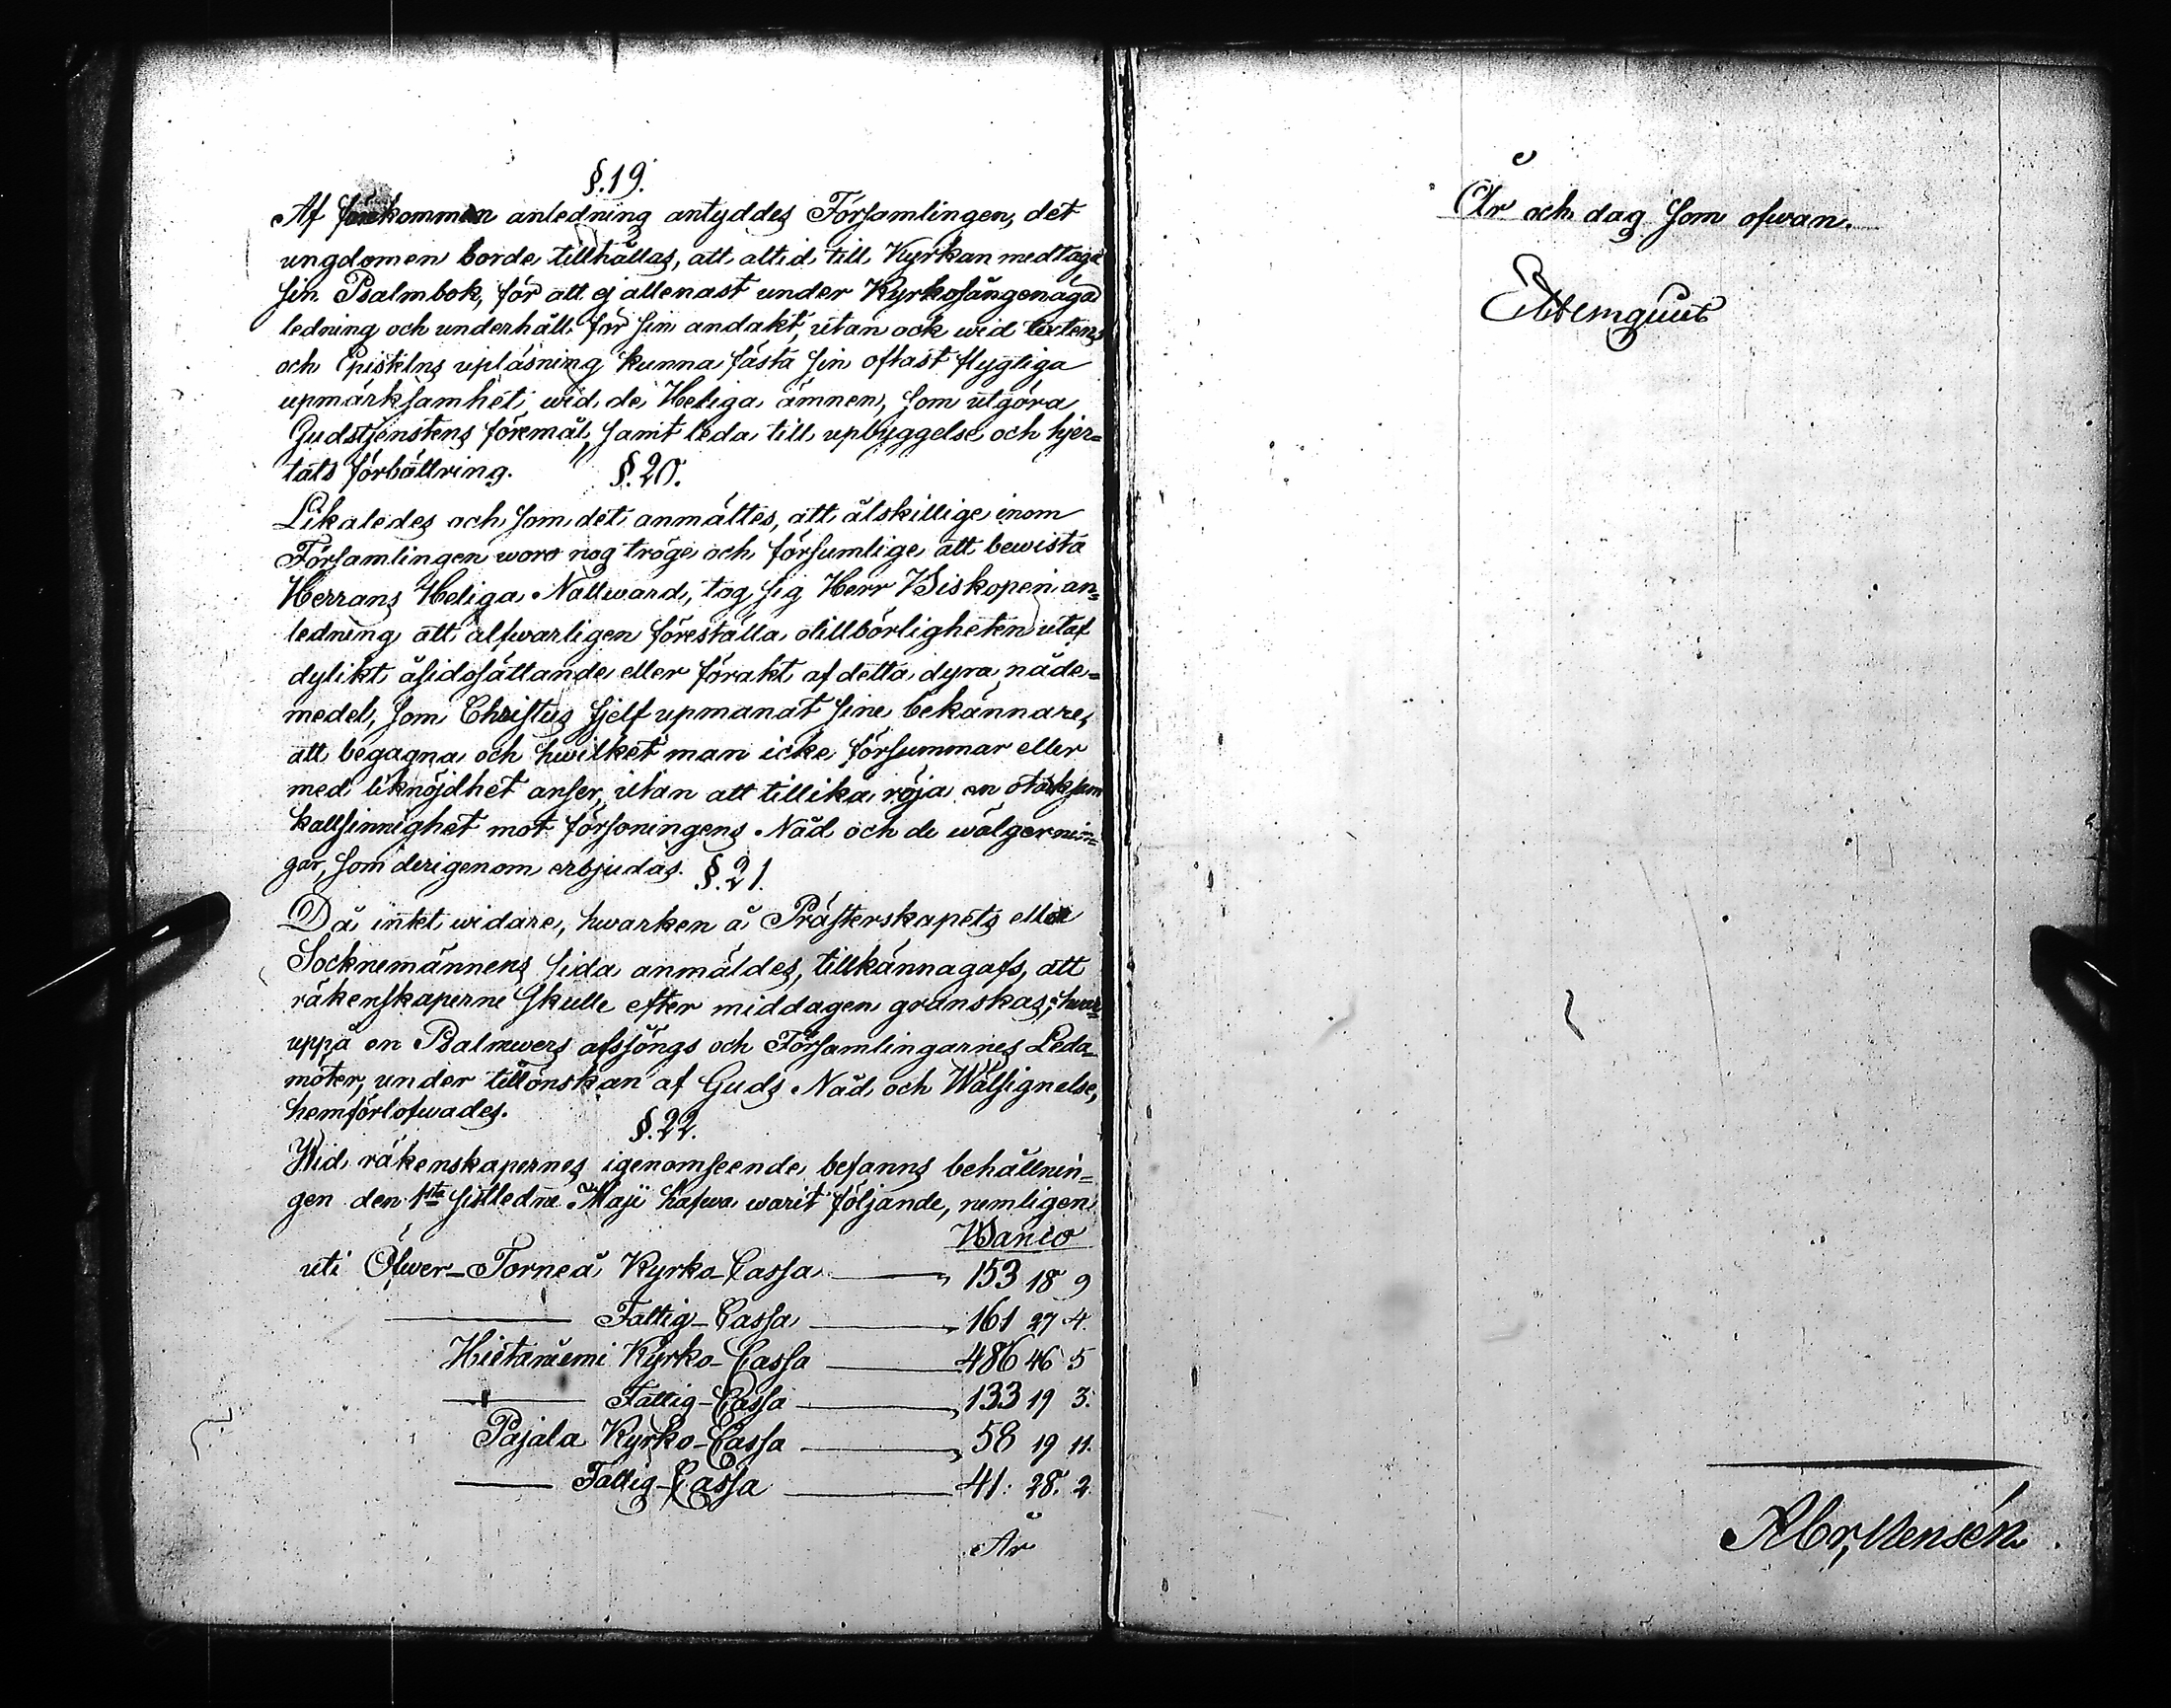 §.19.
Af förekommen anledning antyddes Församlingen, det
ungdomen borde tillhållas, att altid till Kyrkan medtaga
sin Psalmbok, för att ej allenast under Kyrkosången äga
ledning och underhåll för sin andakt, utan ock wid textens
och Epistelns upläsning kunna fästa sin oftast flygtiga
upmärksamhet wid de Heliga ämnen, som utgöra
Gudstjenstens föremål, samt leda till upbyggelse och hjer=
tats förbättring.
§.20.
Likaledes och som det anmältes, att åtskillige inom
Församlingen woro nog tröge och försumlige att bewista
Herrans Heliga Nattward, tog sig Herr Biskopen an=
ledning att alfwarligen föreställa otillbörligheten utaf
dylikt åsidosättande eller förakt af detta dyra nåde=
medel, som Christus sjelf upmanat sine bekännare,
att begagna och hwilket man icke försummar eller
med liknöjdhet anser, utan att tillika röja en otacksam
kallsinnighet mot försoningens Nåd och de wälgernin=
gar, som derigenom erbjudas.
§.21.
Då intet widare, hwarken å Prästerskapets eller
Socknemännens sida anmäldes, tillkännagafs, att
räkenskaperne skulle efter middagen granskas; hwar=
uppå en Psalmwers afsjöngs och Församlingarnes Leda=
möter, under tillönskan af Guds Nåd och Wälsignelse,
hemförlofwades.
§.22.
Wid räkenskapernes igenomseende befanns behållnin=
gen den 1sta sistledne Maji hafwa warit följande, nemligen
Banco
uti Öfwer-Torneå Kyrko-Cassa 153 18 9
Fattig-Cassa 161 27 4.
Hietaniemi Kyrko-Cassa 486 46 5
Fattig-Cassa 133 19 3.
Pajala Kyrko-Cassa 58 19 11.
Fattig-Cassa 41: 28. 2.
År
År och dag som ofwan.